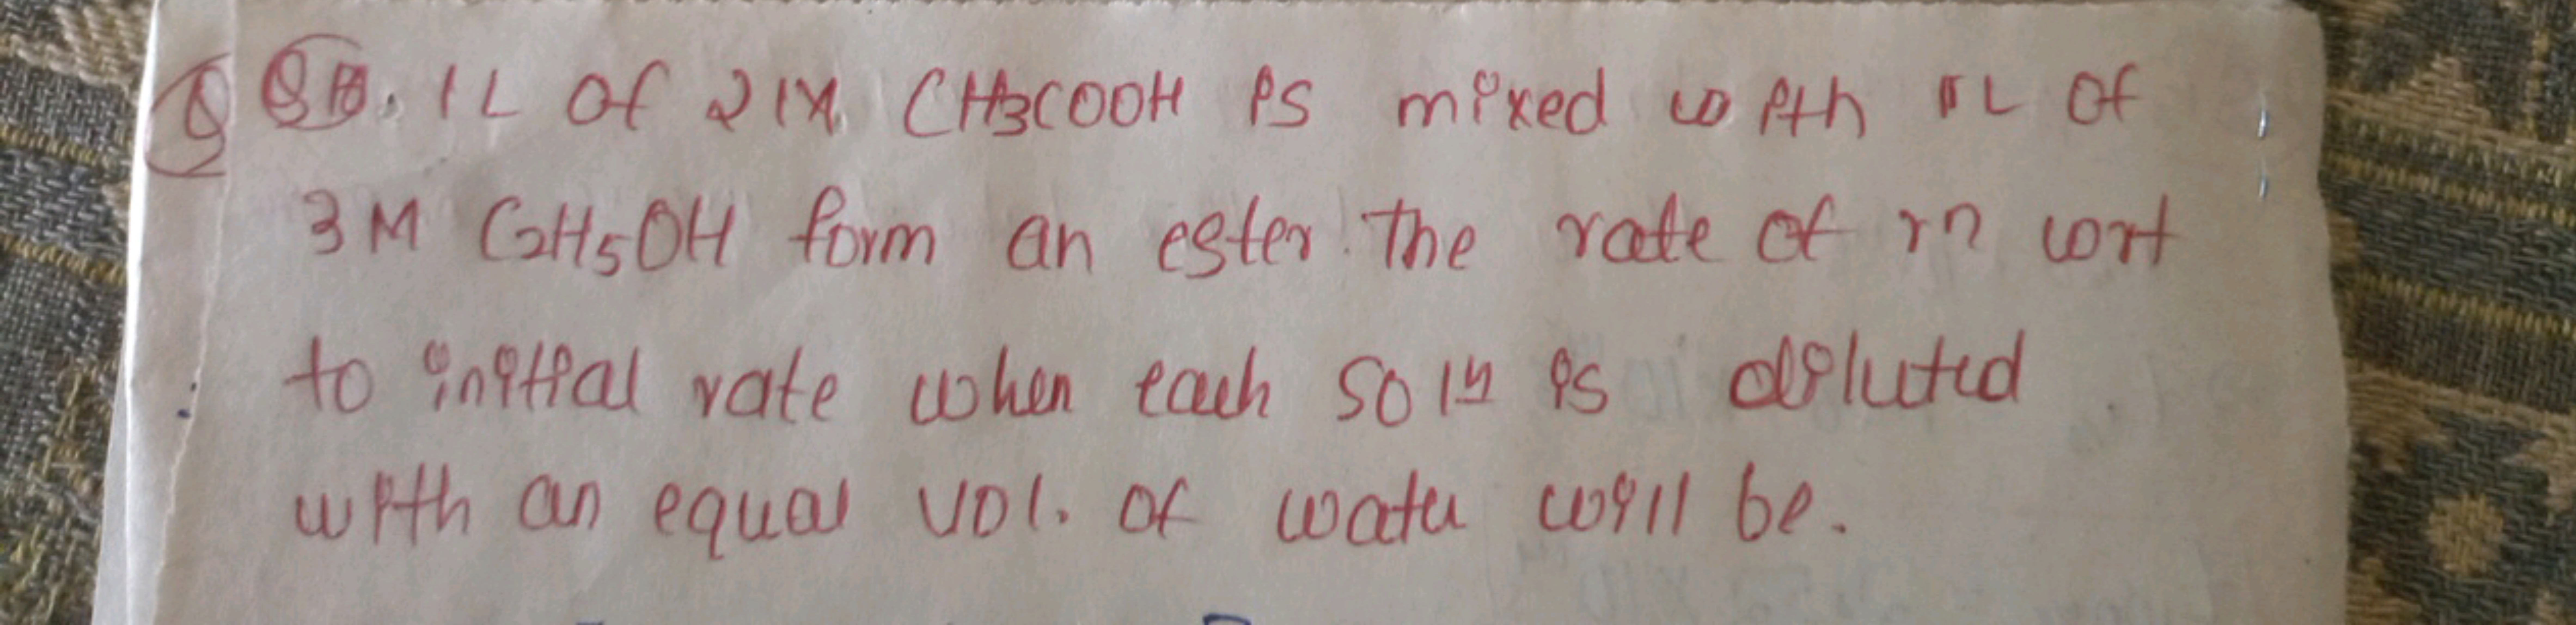 Q. 1L of 2 M CH3COOH is mixed with 1L of
3M C2H5OH form an ester. The rate of rn wrt
to initial rate when each soln is diluted
with an equal vol. of water will be.